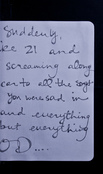 Suddenly,
21 and
screaming along
car to all the songs
you were sad in
and everything
but everything
OD....